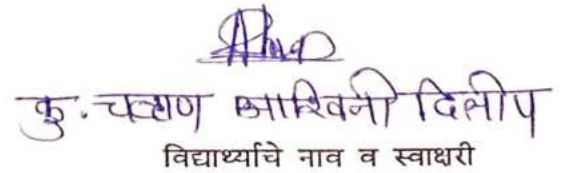 कु. चव्हाण आश्विनी दिलीप
विद्यार्थ्याचे नाव व स्वाक्षरी